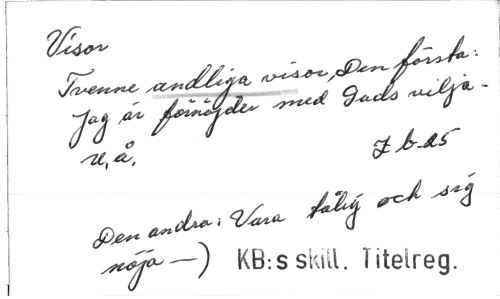 Visor
Tvenne andliga visor, Den första:
Jag är förnöjder med Guds vilja -
U. å. I b. 25
Den andra: Vara tålig och sig
nöja —) KB:s skill. Titelreg.